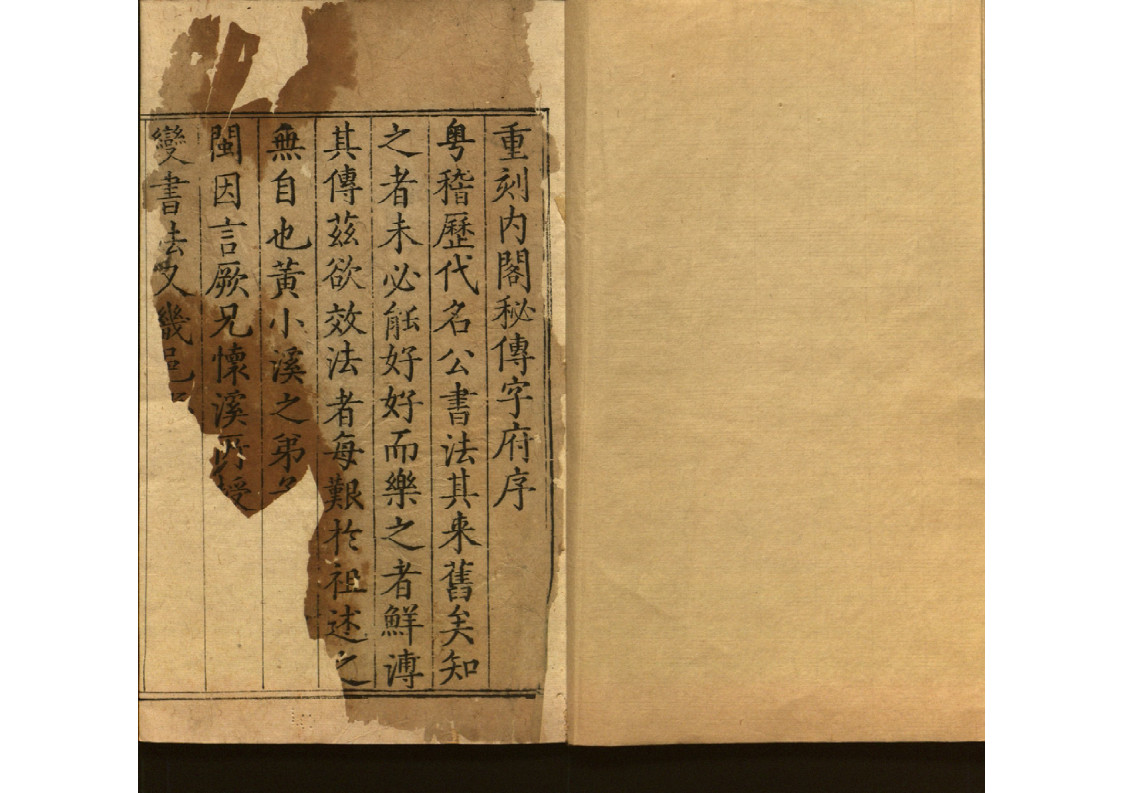 重刻內閣秘傳字府序
粤稽歷代名公書法其来舊矣知
之者未必能好好而樂之者鮮溥
其傳兹欲效法者每艱於祖述之
無自也黃小溪之弟子
閩因言厥兄懷溪所授
變書法又幾邑